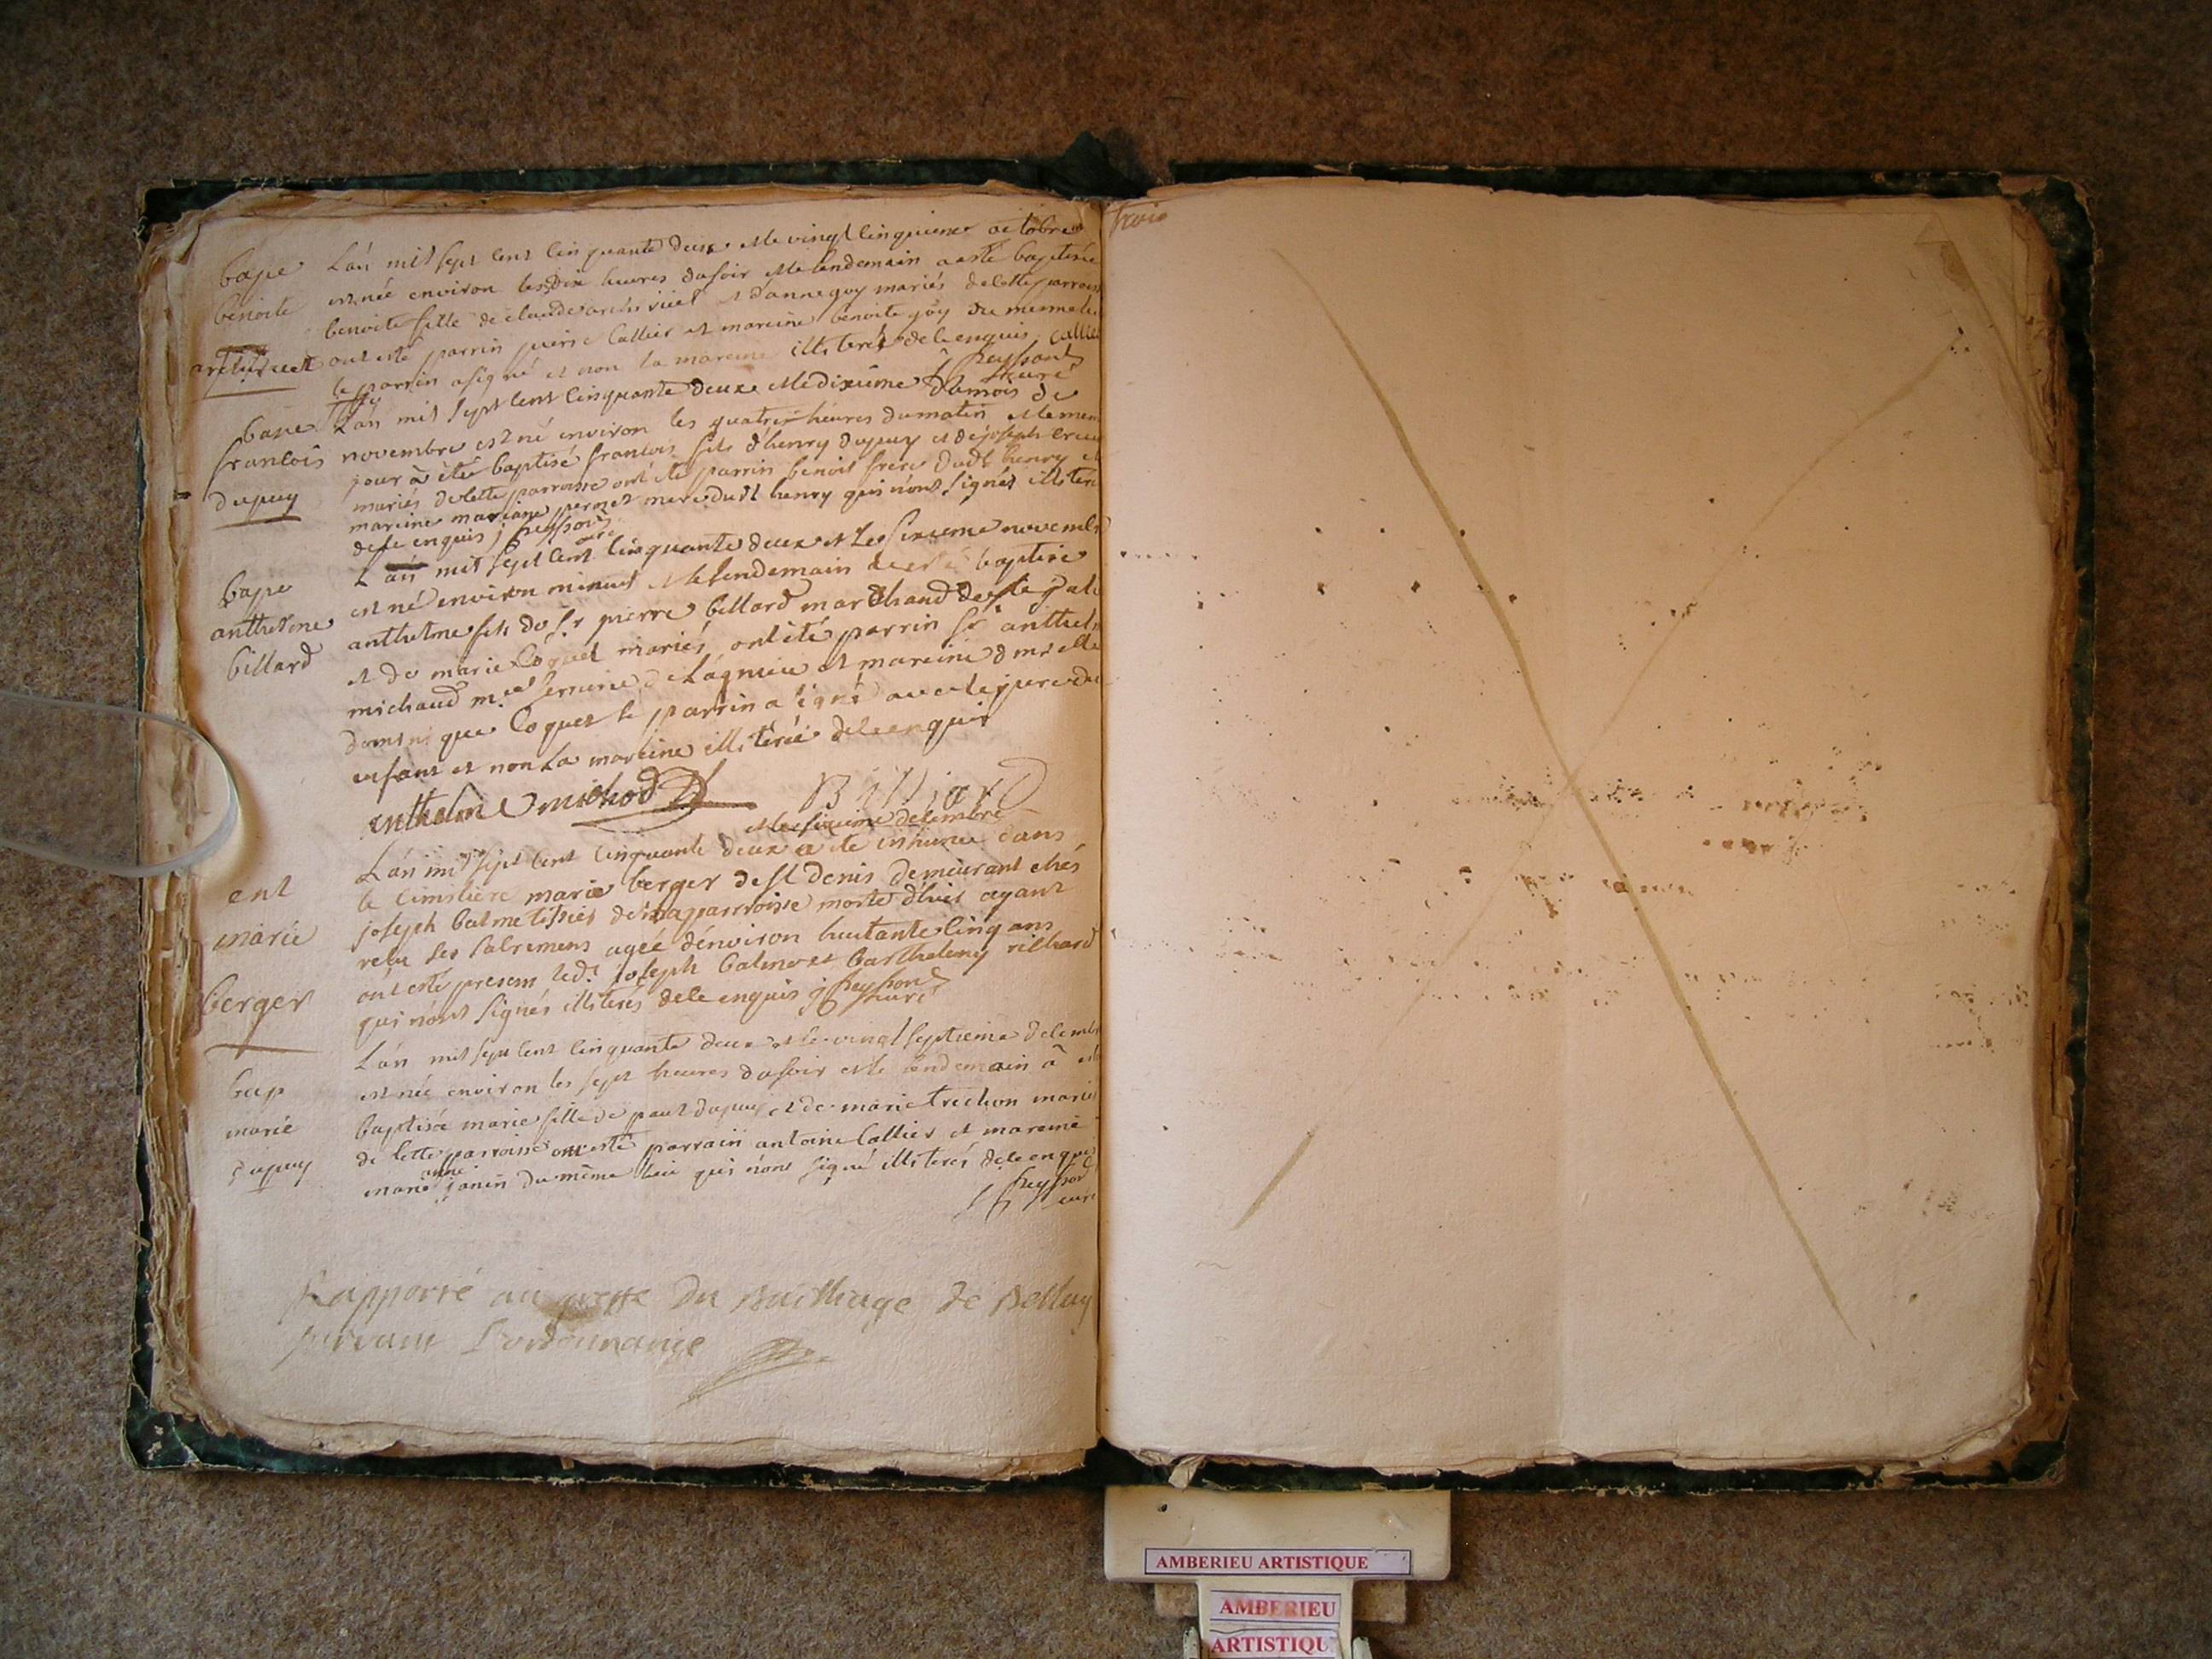 trois
bape L'an mil sept cent cinquante deux et le vingt cinquieme octobre
benoite est née environ les dix heures du soir et le lendemain a esté baptisée
benoite fille de claude et d'anne goy mariés de cette parroisse
ont esté parrin pierre Callier et mareine benoite goy du meme lieu
le parrin a signé et non la mareine illiterés de ce enquis Callier
peysson curé
bape L'an mil sept cent cinquante deux et le dixiéme du mois de
francois novembre est né environ les quatre heures du matin et le meme
dupuy jour à été baptisé francois fils d'henry dupuy et de joseph
mariés de cette parroisse ont été parrin benoit frere dudt henry et
mareine mariane mere dudt henry qui n'ont signés illiterés
de ce enquis peysson curé
bape L'an mil sept cent cinquante deux et Le sixieme novembre
anthelme est né environ minuit et le lendemain a esté baptisé
billard anthelme fils de sr pierre billard marchand
et de marie Coquet mariés, ont été parrin sr anthelme
michaud de Lagnieu et mareine dmselle
dominique Coquet le parrin a signé avec le pere de
enfant et non La mareine illiterée de ce enquis
anthelme michod Billiard
et le sixieme décembre
L'an mil sept cent cinquante deux a été inhumée dans
ent le cimitiere marie berger de st denis demeurant chés
marie joseph balme tissier de ma parroisse morte d'hier ayant
reçu les sacremens agée d'environ huitante cinq ans
berger ont esté presens ledt joseph balme et barthelemy richard
qui n'ont signés illiterés de ce enquis peysson curé
L'an mil sept cent cinquante deux et le vingt septieme decembre
bap est née environ les sept heures du soir et le lendemain à esté
marie baptisée marie fille de paul dupuy et de marie trechon mariés
dupuy de cette parroisse ont esté parrain antoine Callier et mareine
marie anne janin du même lieu qui n'ont signé illiterés de ce enquis
peysson curé
Rapporté au greffe du Bailliage de Belley
suivant L'ordonnance
AMBERIEU ARTISTIQUE
AMBERIEU
ARTISTIQU